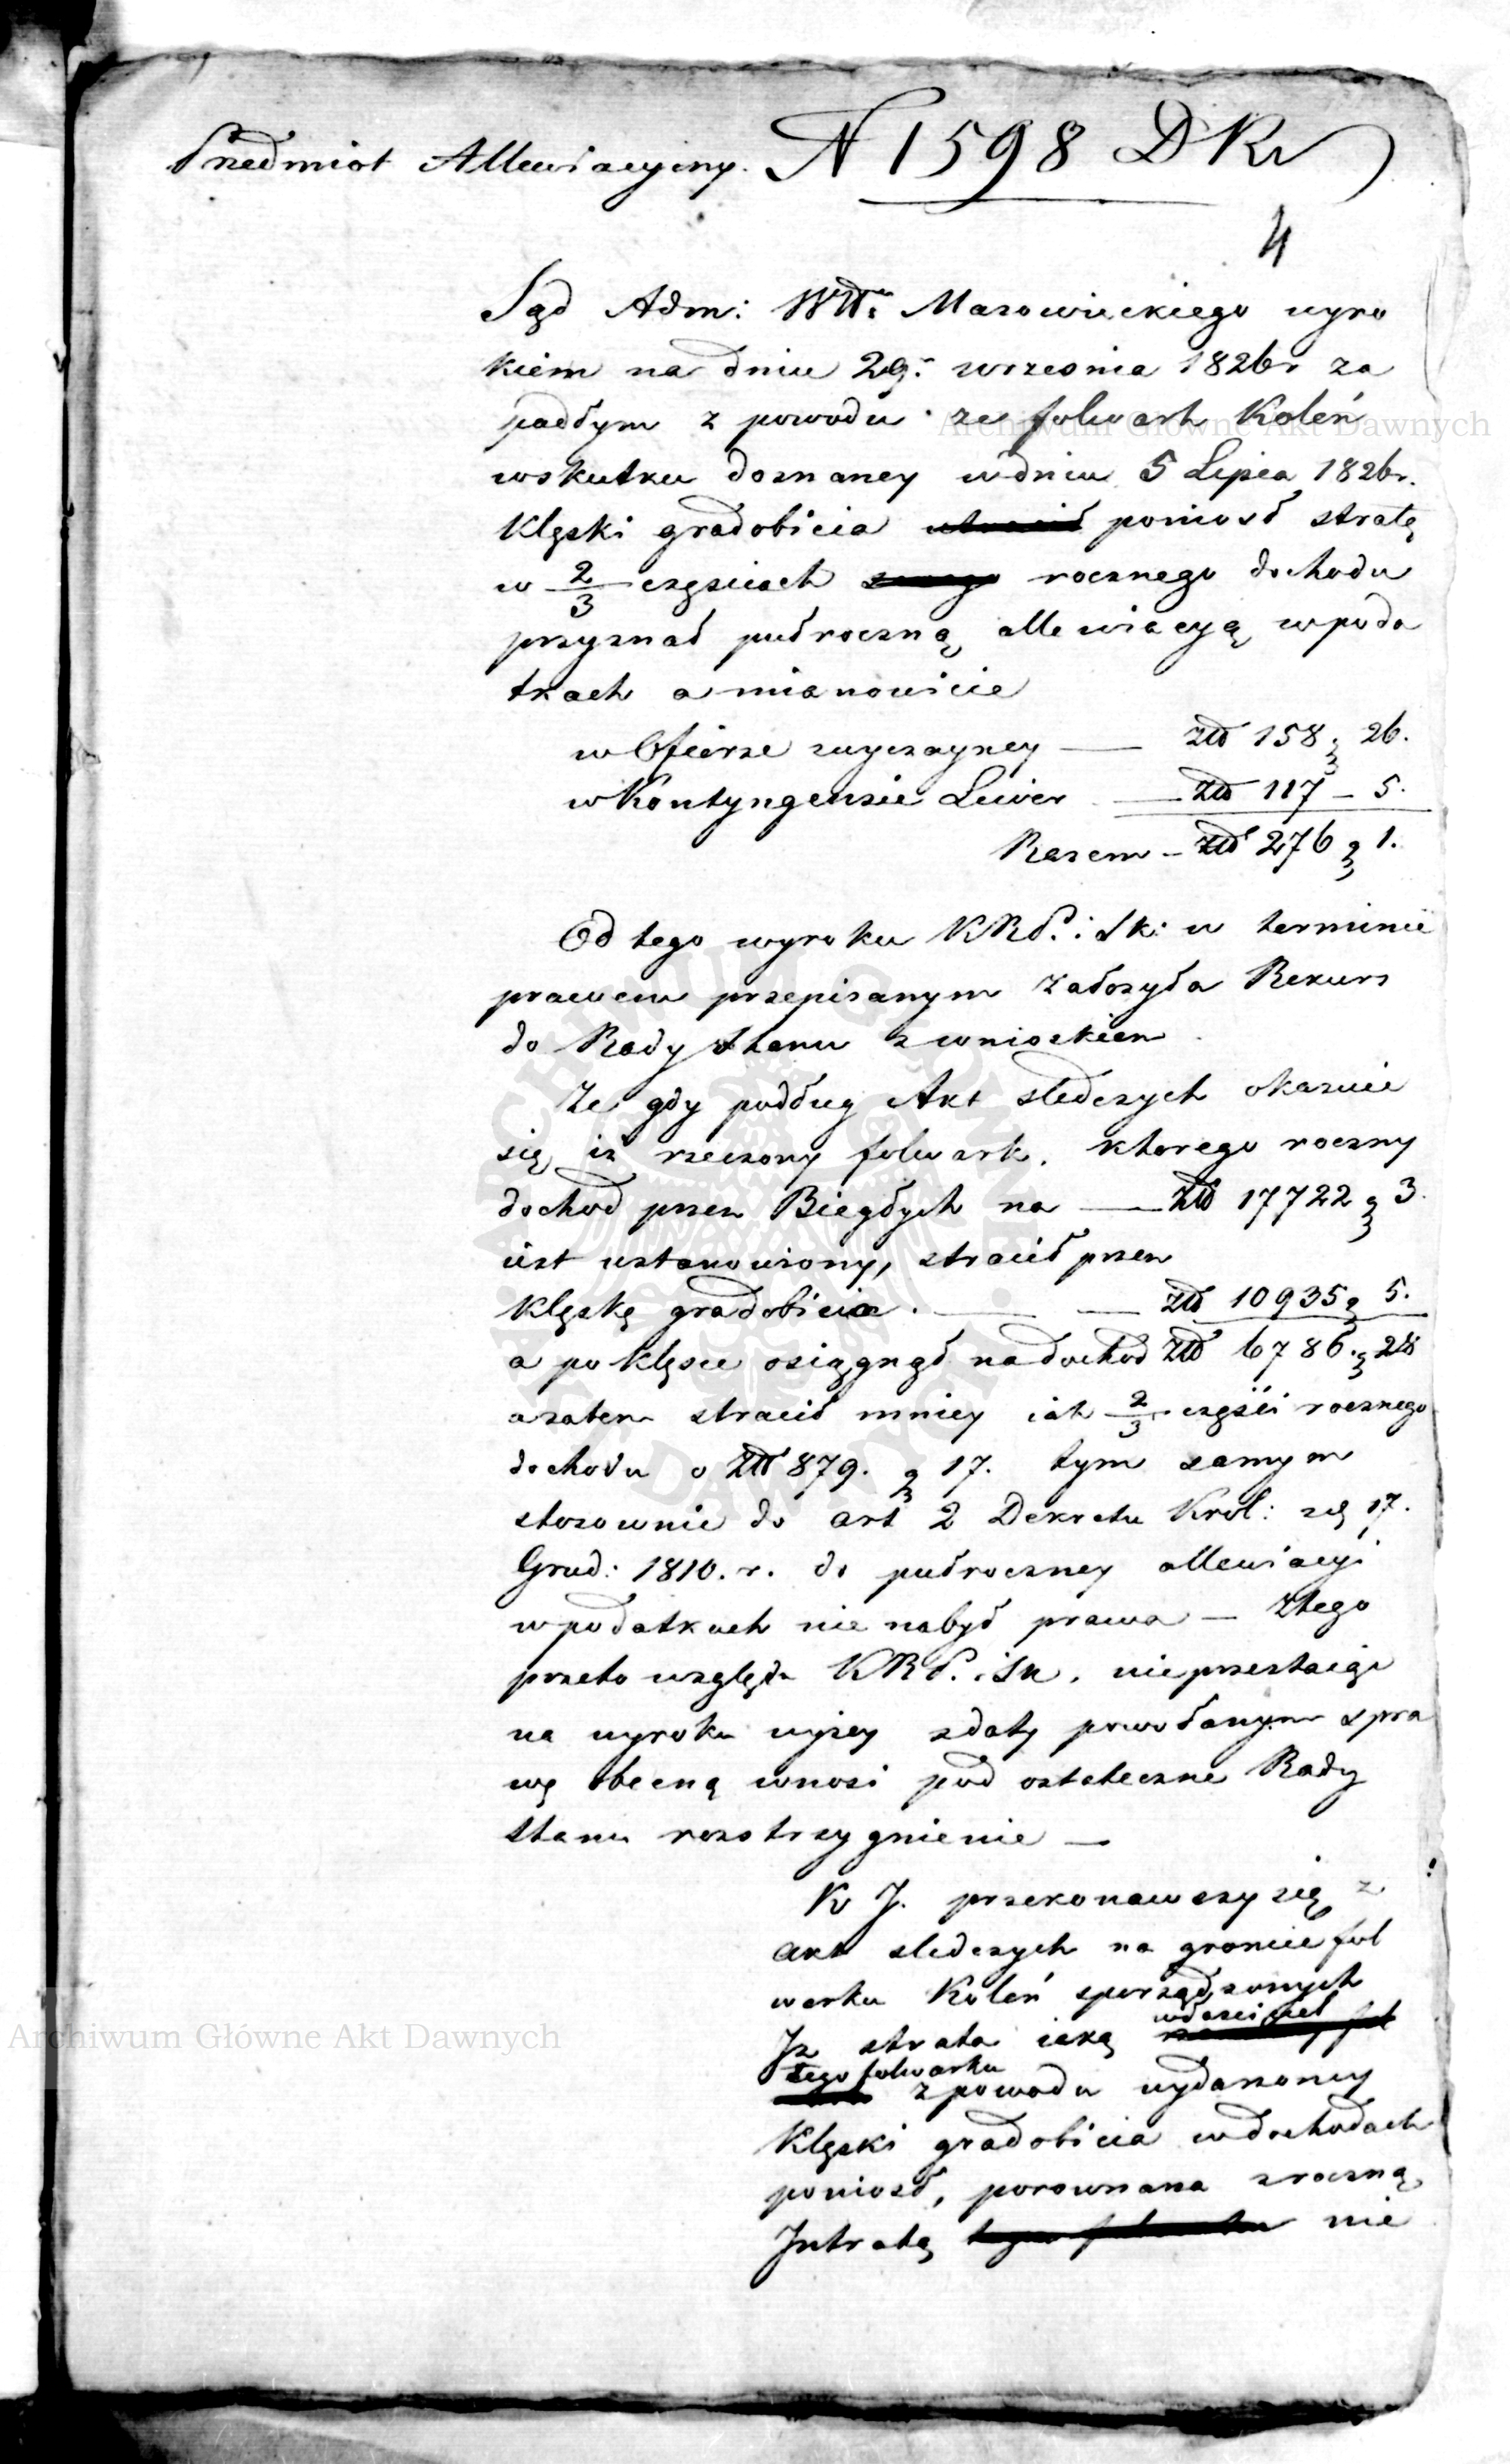 Przedmiot Allewiacyiny. N 1598 DKr
4
Sąd Adm: Wtt: Mazowieckiego wyro
kiem na dniu 29. wrzesnia 1826r za
padłym z powodu ze folwark Koleń
wskutku doznaney w dniu 5 Lipca 1826r.
klęski gradobicia poniosł stratę
w 2/3 częsciach rocznego dochodu
przyznał pułroczną allewiacyą w poda
tkach a mianowicie
w Ofierze zwyczayney — Złł 158 g 26.
w Kontyngensie Liwer — Złł 117 – 5.
Razem – Złł 276 g 1.
Od tego wyroku KRP. i Sk: w terminie
prawem przepisanym założyła Rekurs
do Rady Stanu z wnioskiem
Ze gdy podług Akt sledczych okazuie
się iz rzeczony folwark, ktorego roczny
dochod przez Biegłych na — Złł 17722 g 3.
iest ustanowiony, stracił przez
klęskę gradobicia. — — Złł 10935 g 5.
a po klęsce osiągnął na dochod Złł 6786. g 28
a zatem stracił mniey iak 2/3 częsci rocznego
dochodu o Złł 879. g 17. tym samym
stosownie do art 2 Dekretu Krol: z d 17.
Grud: 1810. r. do pułroczney allewiacyi
w podatkach nie nabył prawa — Z tego
przeto względu KRP. i Sk. nieprzestaiąc
na wyroku wyżey z daty powołanym spra
wę obecną wnosi pod ostateczne Rady
Stanu rozstrzygnienie —
K J. przekonawszy się z
akt sledczych na groncie fol
warku Koleń sporządzonych
Iz strata iaką własciciel
tego folwarku z powodu wydarzoney
klęski gradobicia w dochodach
poniosł, porownana z roczną
Intratą nie
Archiwum Główne Akt Dawnych
Archiwum Główne Akt Dawnych